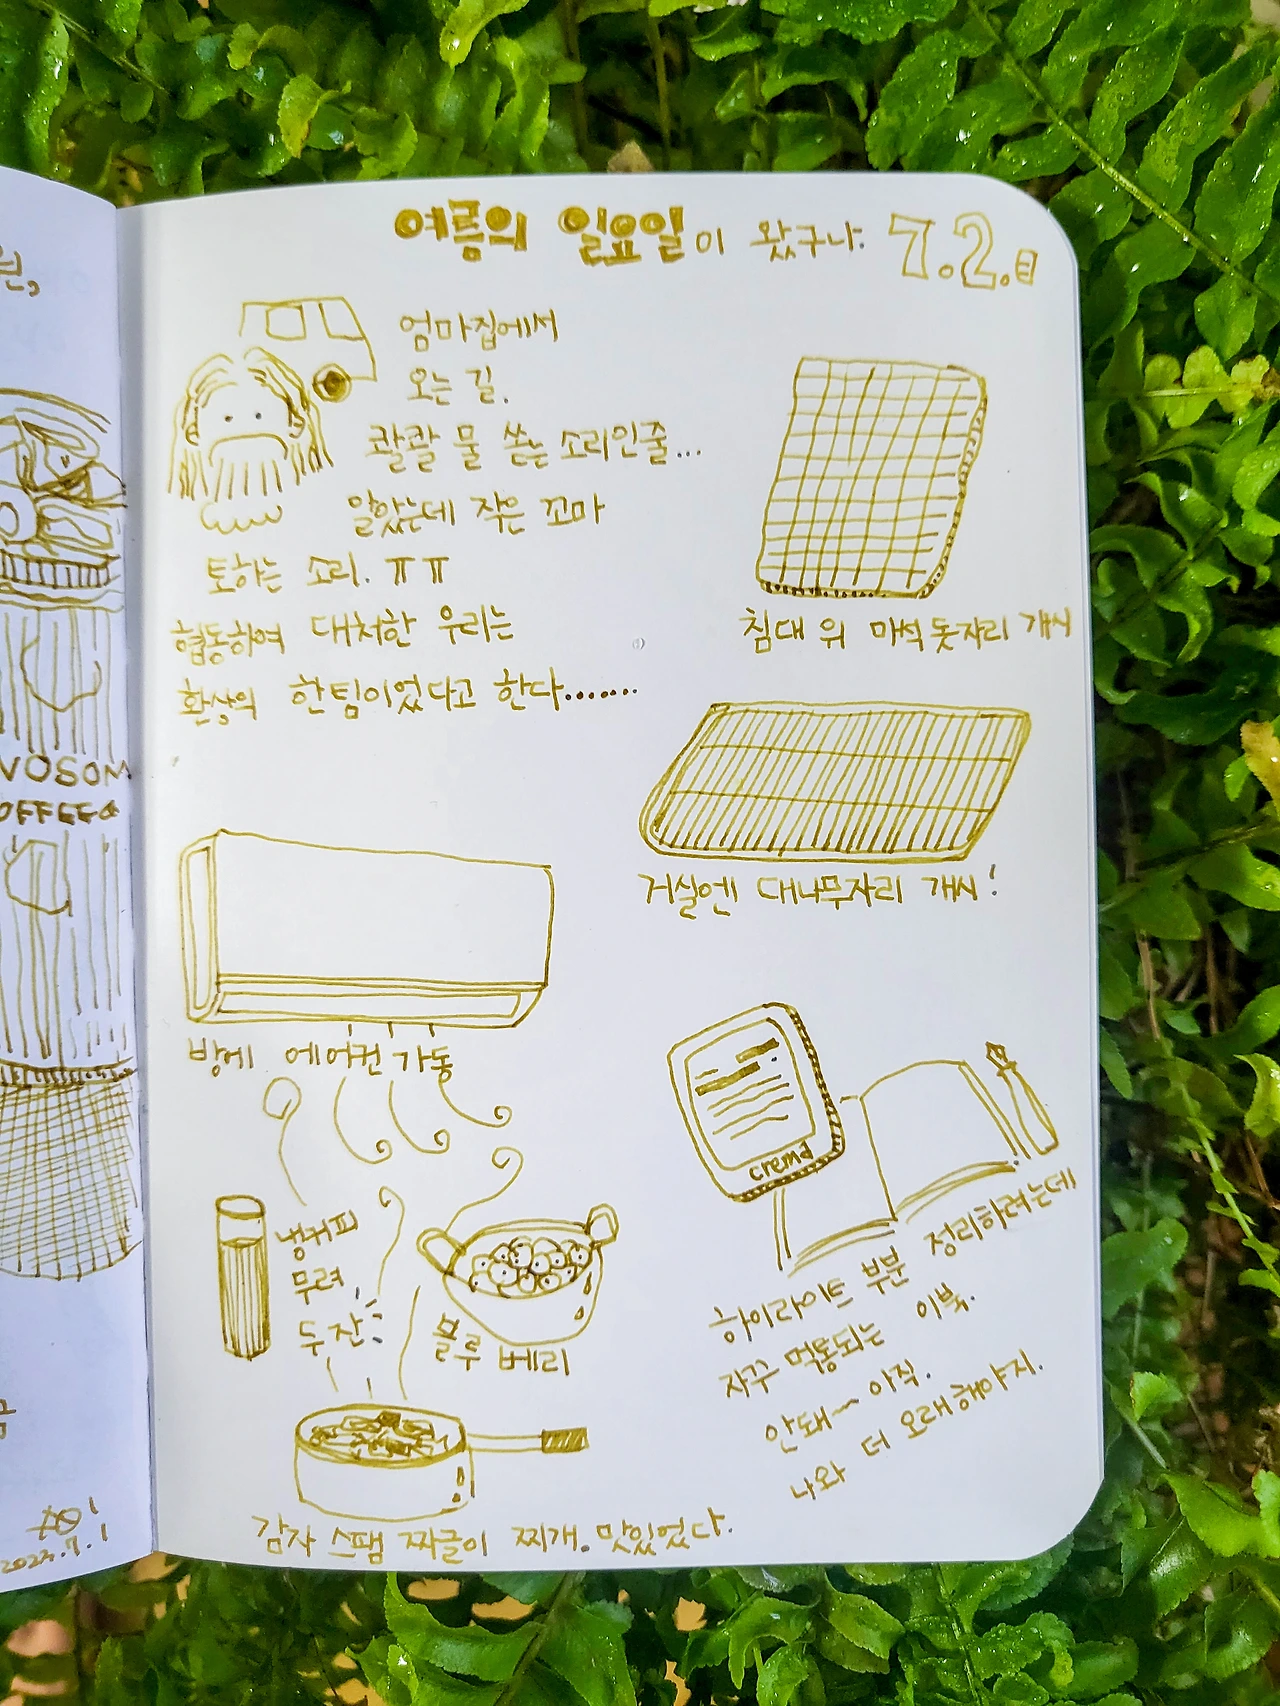 여름의 일요일이 왔구나. 7.2.日
엄마집에서
오는 길.
콸콸 물 쏟는 소리인줄...
알았는데 작은 꼬마
토하는 소리. ㅠㅠ
협동하여 대처한 우리는
환상의 한팀이었다고 한다.......
침대 위 마석돗자리 개시
거실엔 대나무자리 개시!
방에 에어컨 가동
냉커피
무려
두잔
블루베리
감자 스팸 짜글이 찌개. 맛있었다.
crema
하이라이트 부분 정리하려는데
자꾸 먹통되는 이북.
안돼~ 아직.
나와 더 오래해야지.
VOSOM
COFFEE
2023.7.1